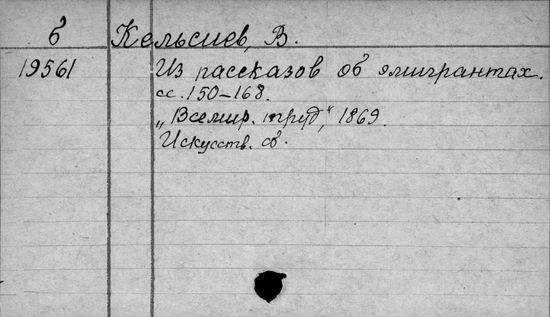 б Кельсиев, В.
19561 Из рассказов об эмигрантах.
сс. 150-168.
„Всемир. труд“, 1869.
Искусств. об.